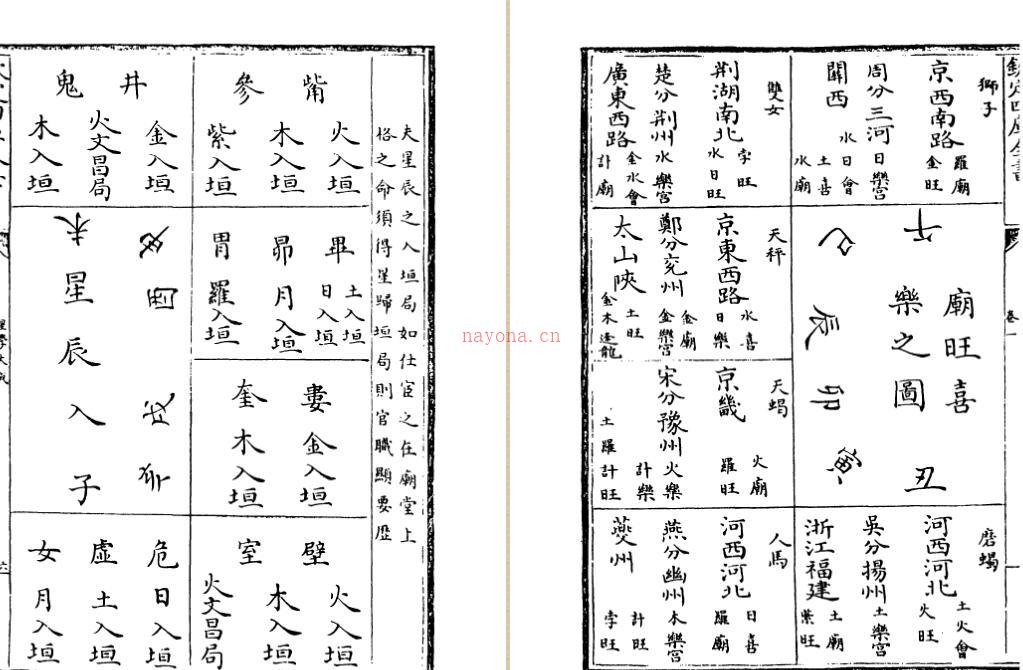 獅子
京西南路
羅廟
金旺
周分三河
日樂宮
關西
水日會
土喜
水廟
雙女
荆湖南北
孛旺
水日旺
楚分荆州
水樂宮
廣東西路
金水會
計廟
午
巳
辰
卯
寅
丑
廟旺喜
樂之圖
天秤
京東西路
水喜
日樂
鄭分兖州
金廟
金樂宮
太山陝
土旺
天蝎
京畿
火廟
羅旺
宋分豫州
火樂
計樂
土羅計旺
磨蝎
河西河北
土火會
火旺
吳分揚州
土樂宮
浙江福建
土廟
紫旺
人馬
河西河北
日喜
羅廟
燕分幽州
木樂宮
計旺
夔州
孛旺
卷一
夫星辰之入垣局如仕宦之在廟堂上
格之命須得星歸垣局則官職顯要歷
觜
火入垣
木入垣
參
紫入垣
井
金入垣
火文昌局
鬼
木入垣
畢
土入垣
日入垣
昴
月入垣
胃
羅入垣
婁
金入垣
奎
木入垣
壁
火入垣
木入垣
室
火文昌局
危
日入垣
虛
土入垣
女
月入垣
未
星辰入
子
酉
戌
亥
六
nayona.cn